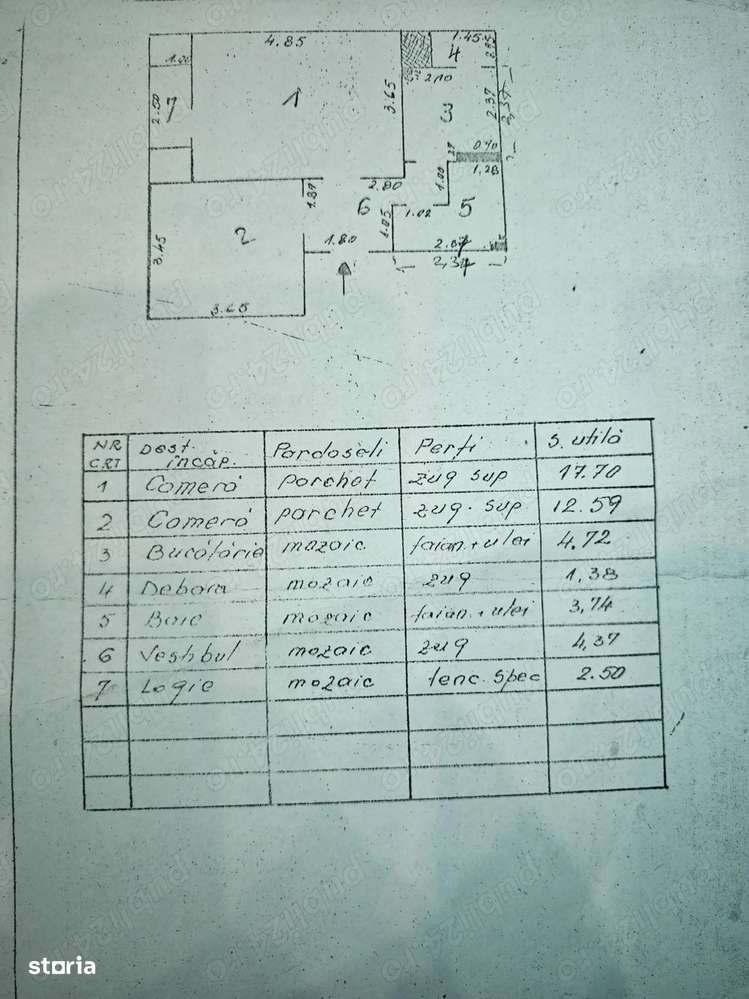 4.85
1.45
4
0.95
1.00
2.10
1
3.65
2.50
7
3
2.37
2,37
0.40
1.28
1.00
2.80
1.80
6
1.02
5
1.05
2
3.45
1.80
2,34
3.65
NR CRT Dest. încăp. Pardoseli Perți S. utilă
1 Cameră parchet zug sup 17.70
2 Cameră parchet zug. sup 12.59
3 Bucătărie mozaic faian.+ulei 4.72
4 Debara mozaic zug 1,38
5 Baie mozaic faian.+ulei 3,74
6 Vestibul mozaic zug 4,37
7 Logie mozaic tenc. spec 2.50
storia
publi24.ro